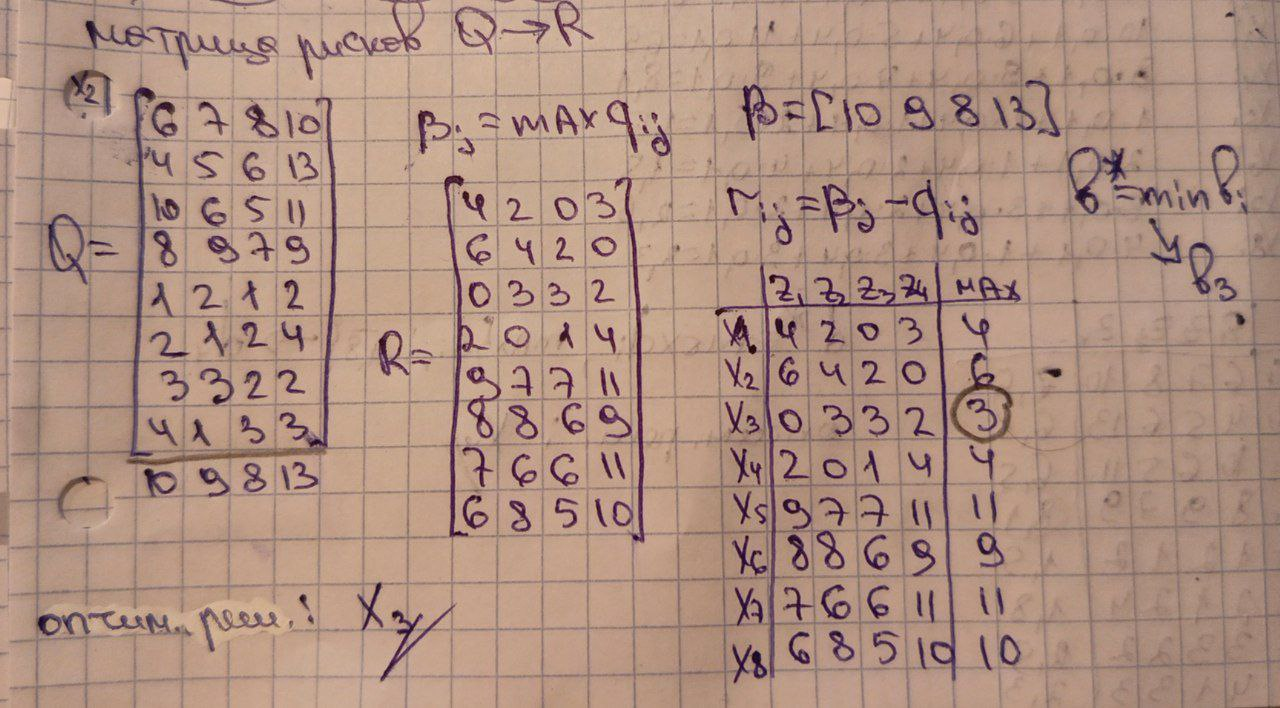 матрица рисков Q→R
x₂
Q=
6 7 8 10
4 5 6 13
10 6 5 11
8 9 7 9
1 2 1 2
2 1 2 4
3 3 2 2
4 1 3 3
10 9 8 13
βⱼ = max qᵢⱼ
R=
4 2 0 3
6 4 2 0
0 3 3 2
2 0 1 4
9 7 7 11
8 8 6 9
7 6 6 11
6 8 5 10
β=[10 9 8 13]
rᵢⱼ = βⱼ - qᵢⱼ
b*=min bᵢ
b₃
Z₁ Z₂ Z₃ Z₄ MAX
X1 4 2 0 3 4
X₂ 6 4 2 0 6
X₃ 0 3 3 2 3
X₄ 2 0 1 4 4
X₅ 9 7 7 11 11
X₆ 8 8 6 9 9
X₇ 7 6 6 11 11
X8 6 8 5 10 10
оптим. реш.: X₃